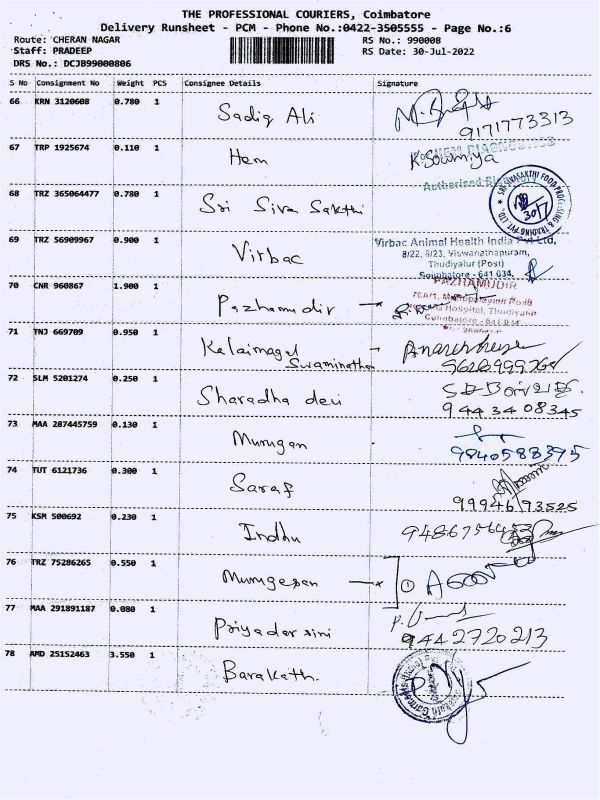 THE PROFESSIONAL COURIERS, Coimbatore
Delivery Runsheet - PCM - Phone No.:0422-3505555 - Page No.:6
Route: CHERAN NAGAR RS No.: 990008
Staff: PRADEEP RS Date: 30-Jul-2022
DRS No.: DCJB99000806
S No Consignment No Weight PCS Consignee Details Signature
66 KRN 3120608 0.780 1 Sadiq Ali
9171773313
67 TRP 1925674 0.110 1 Hem K. Sowmiya
Authorised
68 TRZ 365064477 0.780 1 Sri Siva Sakthi
30/7
69 TRZ 56909967 0.900 1 Virbac
Virbac Animal Health India Pvt Ltd,
8/22, 8/23, Viswanathapuram,
Thudiyalur (Post)
Coimbatore - 641 034.
70 CNR 960867 1.900 1 Pazhamudir
PAZHAMUDIR
Hospital, Thudiyalur
Coimbatore - 641 034
71 TNJ 669709 0.950 1 Kalaimagal
Swaminathan
72 SLM 5201274 0.250 1 Sharadha devi
9443408345
73 MAA 287445759 0.130 1 Murugan
9840583395
74 TUT 6121736 0.300 1 Saraf
9994693525
75 KSM 500692 0.230 1 Indhu
76 TRZ 75286265 0.550 1 Murugesan
77 MAA 291891187 0.080 1 Priyadarsini
9442720213
78 AMD 25152463 3.550 1 Barakath.